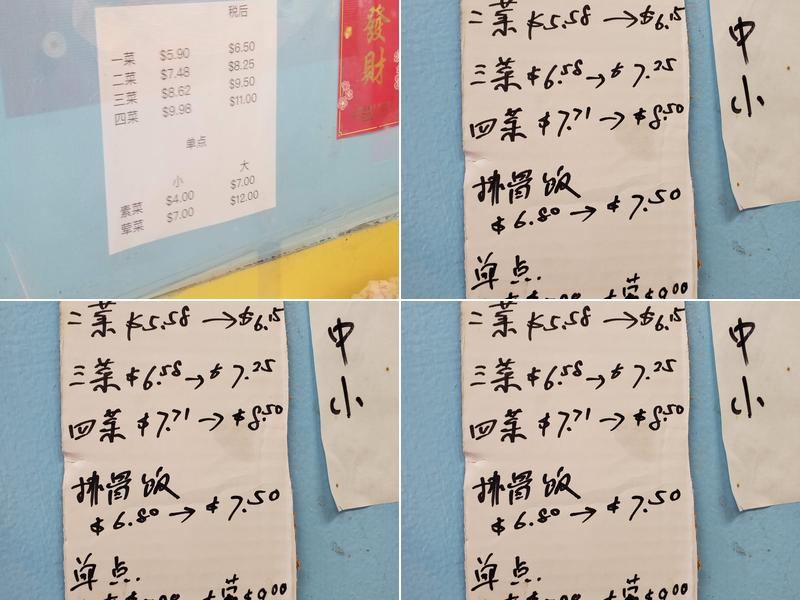 税后
一菜 $5.90 $6.50
二菜 $7.48 $8.25
三菜 $8.62 $9.50
四菜 $9.98 $11.00
单点
小 大
素菜 $4.00 $7.00
荤菜 $7.00 $12.00
發
財
二菜 $5.58 → $6.15
三菜 $6.58 → $7.25
四菜 $7.71 → $8.50
排骨饭
$6.80 → $7.50
单点.
中
小
二菜 $5.58 → $6.15
三菜 $6.58 → $7.25
四菜 $7.71 → $8.50
排骨饭
$6.80 → $7.50
单点.
中
小
二菜 $5.58 → $6.15
三菜 $6.58 → $7.25
四菜 $7.71 → $8.50
排骨饭
$6.80 → $7.50
单点.
中
小